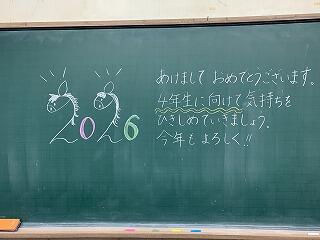 2026
あけまして おめでとうございます。
4年生に向けて気持ちを
ひきしめていきましょう。
今年もよろしく!!